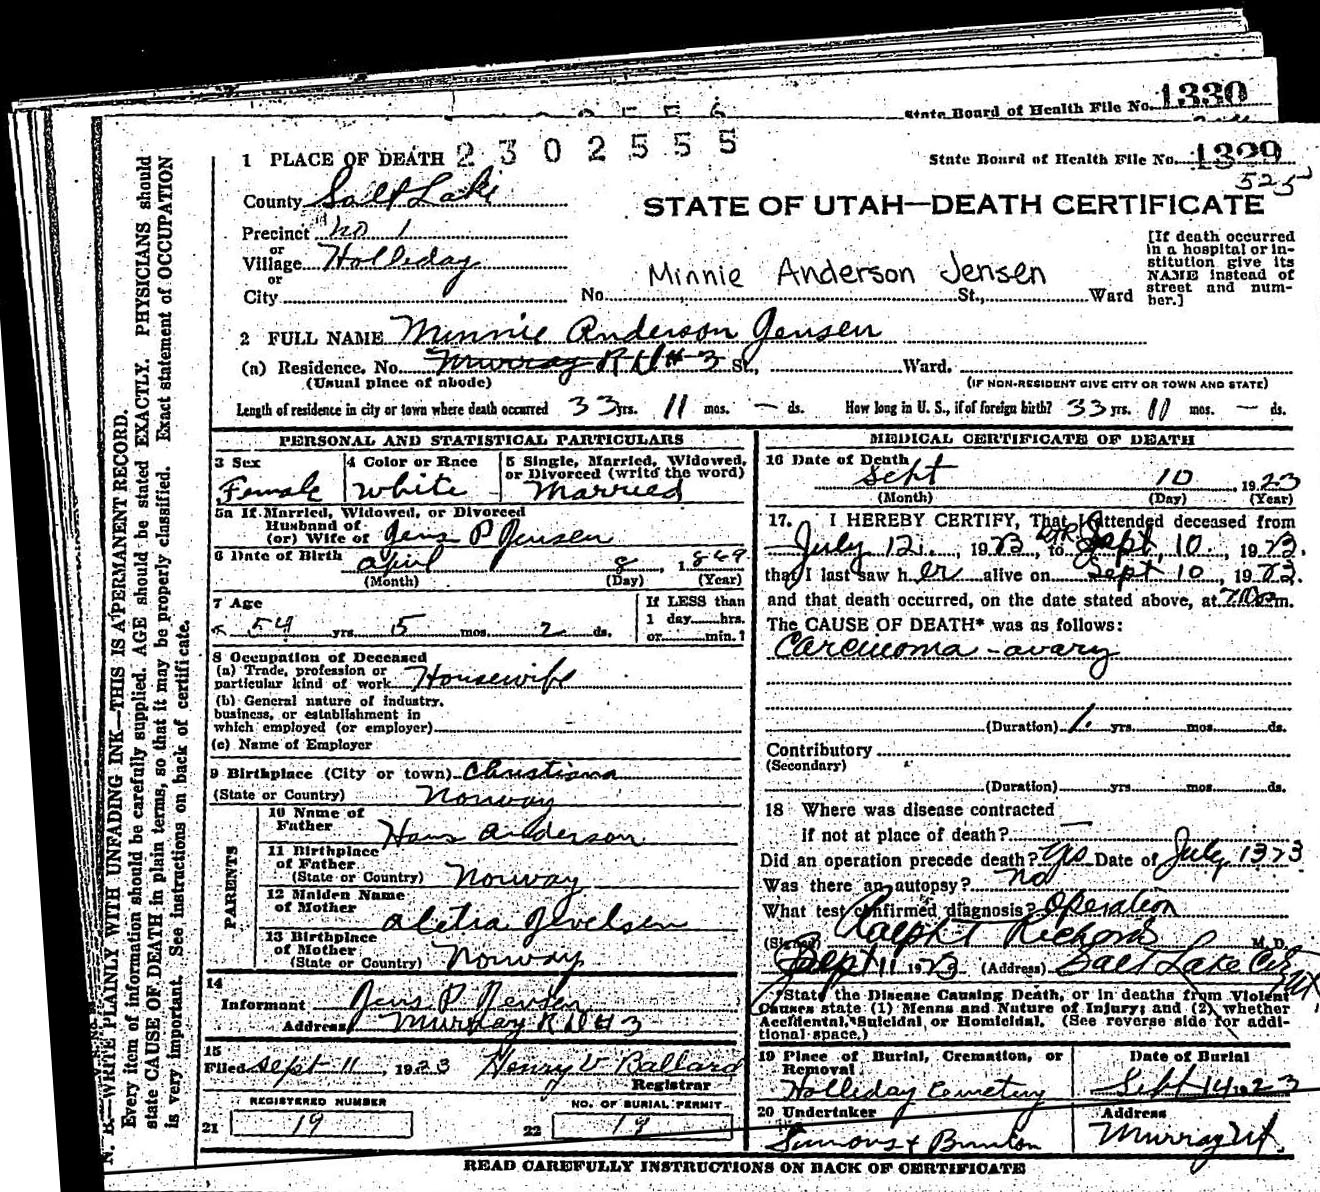 State Board of Health File No. 1330
1 PLACE OF DEATH 2302555
State Board of Health File No. 1329
525
County Salt Lake
STATE OF UTAH—DEATH CERTIFICATE
Precinct No 1
or
Village Holliday
or
City No. Minnie Anderson Jensen St., Ward
[If death occurred
in a hospital or in-
stitution give its
NAME instead of
street and num-
ber.]
2 FULL NAME Minnie Anderson Jensen
(a) Residence. No. Murray R D # 3 St., Ward.
(Usual place of abode) (IF NON-RESIDENT GIVE CITY OR TOWN AND STATE)
Length of residence in city or town where death occurred 33 yrs. 11 mos. — ds. How long in U. S., if of foreign birth? 33 yrs. 11 mos. — ds.
PERSONAL AND STATISTICAL PARTICULARS
3 Sex
Female
4 Color or Race
White
5 Single, Married, Widowed,
or Divorced (write the word)
Married
5a If Married, Widowed, or Divorced
Husband of
(or) Wife of Jens P Jensen
6 Date of Birth April 8, 1869
(Month) (Day) (Year)
7 Age
54 yrs. 5 mos. 2 ds.
If LESS than
1 day hrs.
or min.?
8 Occupation of Deceased
(a) Trade, profession or
particular kind of work Housewife
(b) General nature of industry,
business, or establishment in
which employed (or employer)
(c) Name of Employer
9 Birthplace (City or town) Christiana
(State or Country) Norway
PARENTS
10 Name of
Father Hans Anderson
11 Birthplace
of Father
(State or Country) Norway
12 Maiden Name
of Mother
13 Birthplace
of Mother
(State or Country) Norway
14
Informant Jens P Jensen
Address Murray R D # 3
15
Filed Sept 11, 1923 Henry V Ballard
Registrar
REGISTERED NUMBER
21 19
NO. OF BURIAL PERMIT
22 19
MEDICAL CERTIFICATE OF DEATH
16 Date of Death
Sept 10 1923
(Month) (Day) (Year)
17. I HEREBY CERTIFY, That I attended deceased from
July 12, 1923, to Sept 10, 1923.
that I last saw her alive on Sept 10, 1923.
and that death occurred, on the date stated above, at m.
The CAUSE OF DEATH* was as follows:
Carcinoma - ovary
(Duration) 1 yrs. mos. ds.
Contributory
(Secondary)
(Duration) yrs. mos. ds.
18 Where was disease contracted
if not at place of death? —
Did an operation precede death? Yes Date of July 1323
Was there an autopsy? No
What test confirmed diagnosis? Operation
(Signed) Ralph T Richards M. D.
Sept 11 1923 (Address) Salt Lake City Ut
*State the Disease Causing Death, or in deaths from Violent
Causes state (1) Menns and Nature of Injury; and (2) whether
Accidental, Suicidal or Homicidal. (See reverse side for addi-
tional space.)
19 Place of Burial, Cremation, or
Removal
Holliday Cemetery
Date of Burial
Sept 14 1923
20 Undertaker
Address
Murray Ut.
READ CAREFULLY INSTRUCTIONS ON BACK OF CERTIFICATE
N. B.—WRITE PLAINLY WITH UNFADING INK—THIS IS A PERMANENT RECORD.
Every item of information should be carefully supplied. AGE should be stated EXACTLY. PHYSICIANS should
state CAUSE OF DEATH in plain terms, so that it may be properly classified. Exact statement of OCCUPATION
is very important. See instructions on back of certificate.